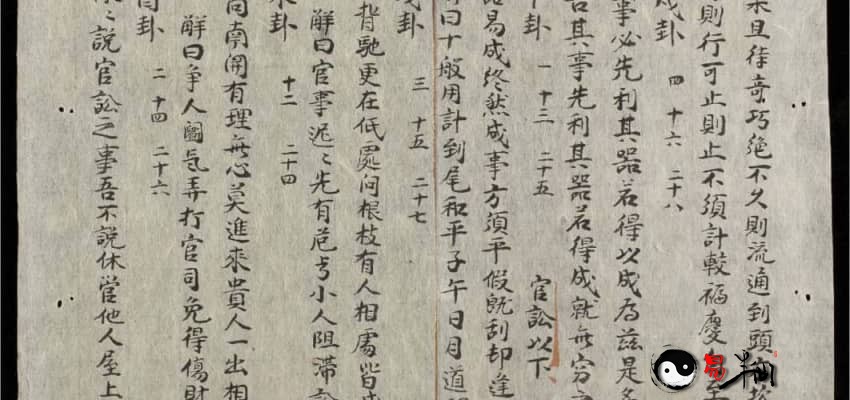 且待奇巧絶不久則流通到頭
則行可止則止不須計較福慶
卦 四 十六 二十八
事必先利其器若得以成為茲是
其事先利其器若得成就無穷
卦 一 十三 二十五
官訟以下
易成終然成事方須平假既刮却逢
曰十般用計到尾和平子午日月道
卦 三 十五 二十七
背馳更在低處问根枝有人相處皆
解曰官事遲〻先有范与小人阻滞
卦 十二 二十四
向南開有理無心莫進來貴人一出相
解曰争人闘氣弄打官司免得傷財
卦 二 十四 二十六
〻說官訟之事吾不說休管他人屋上
易